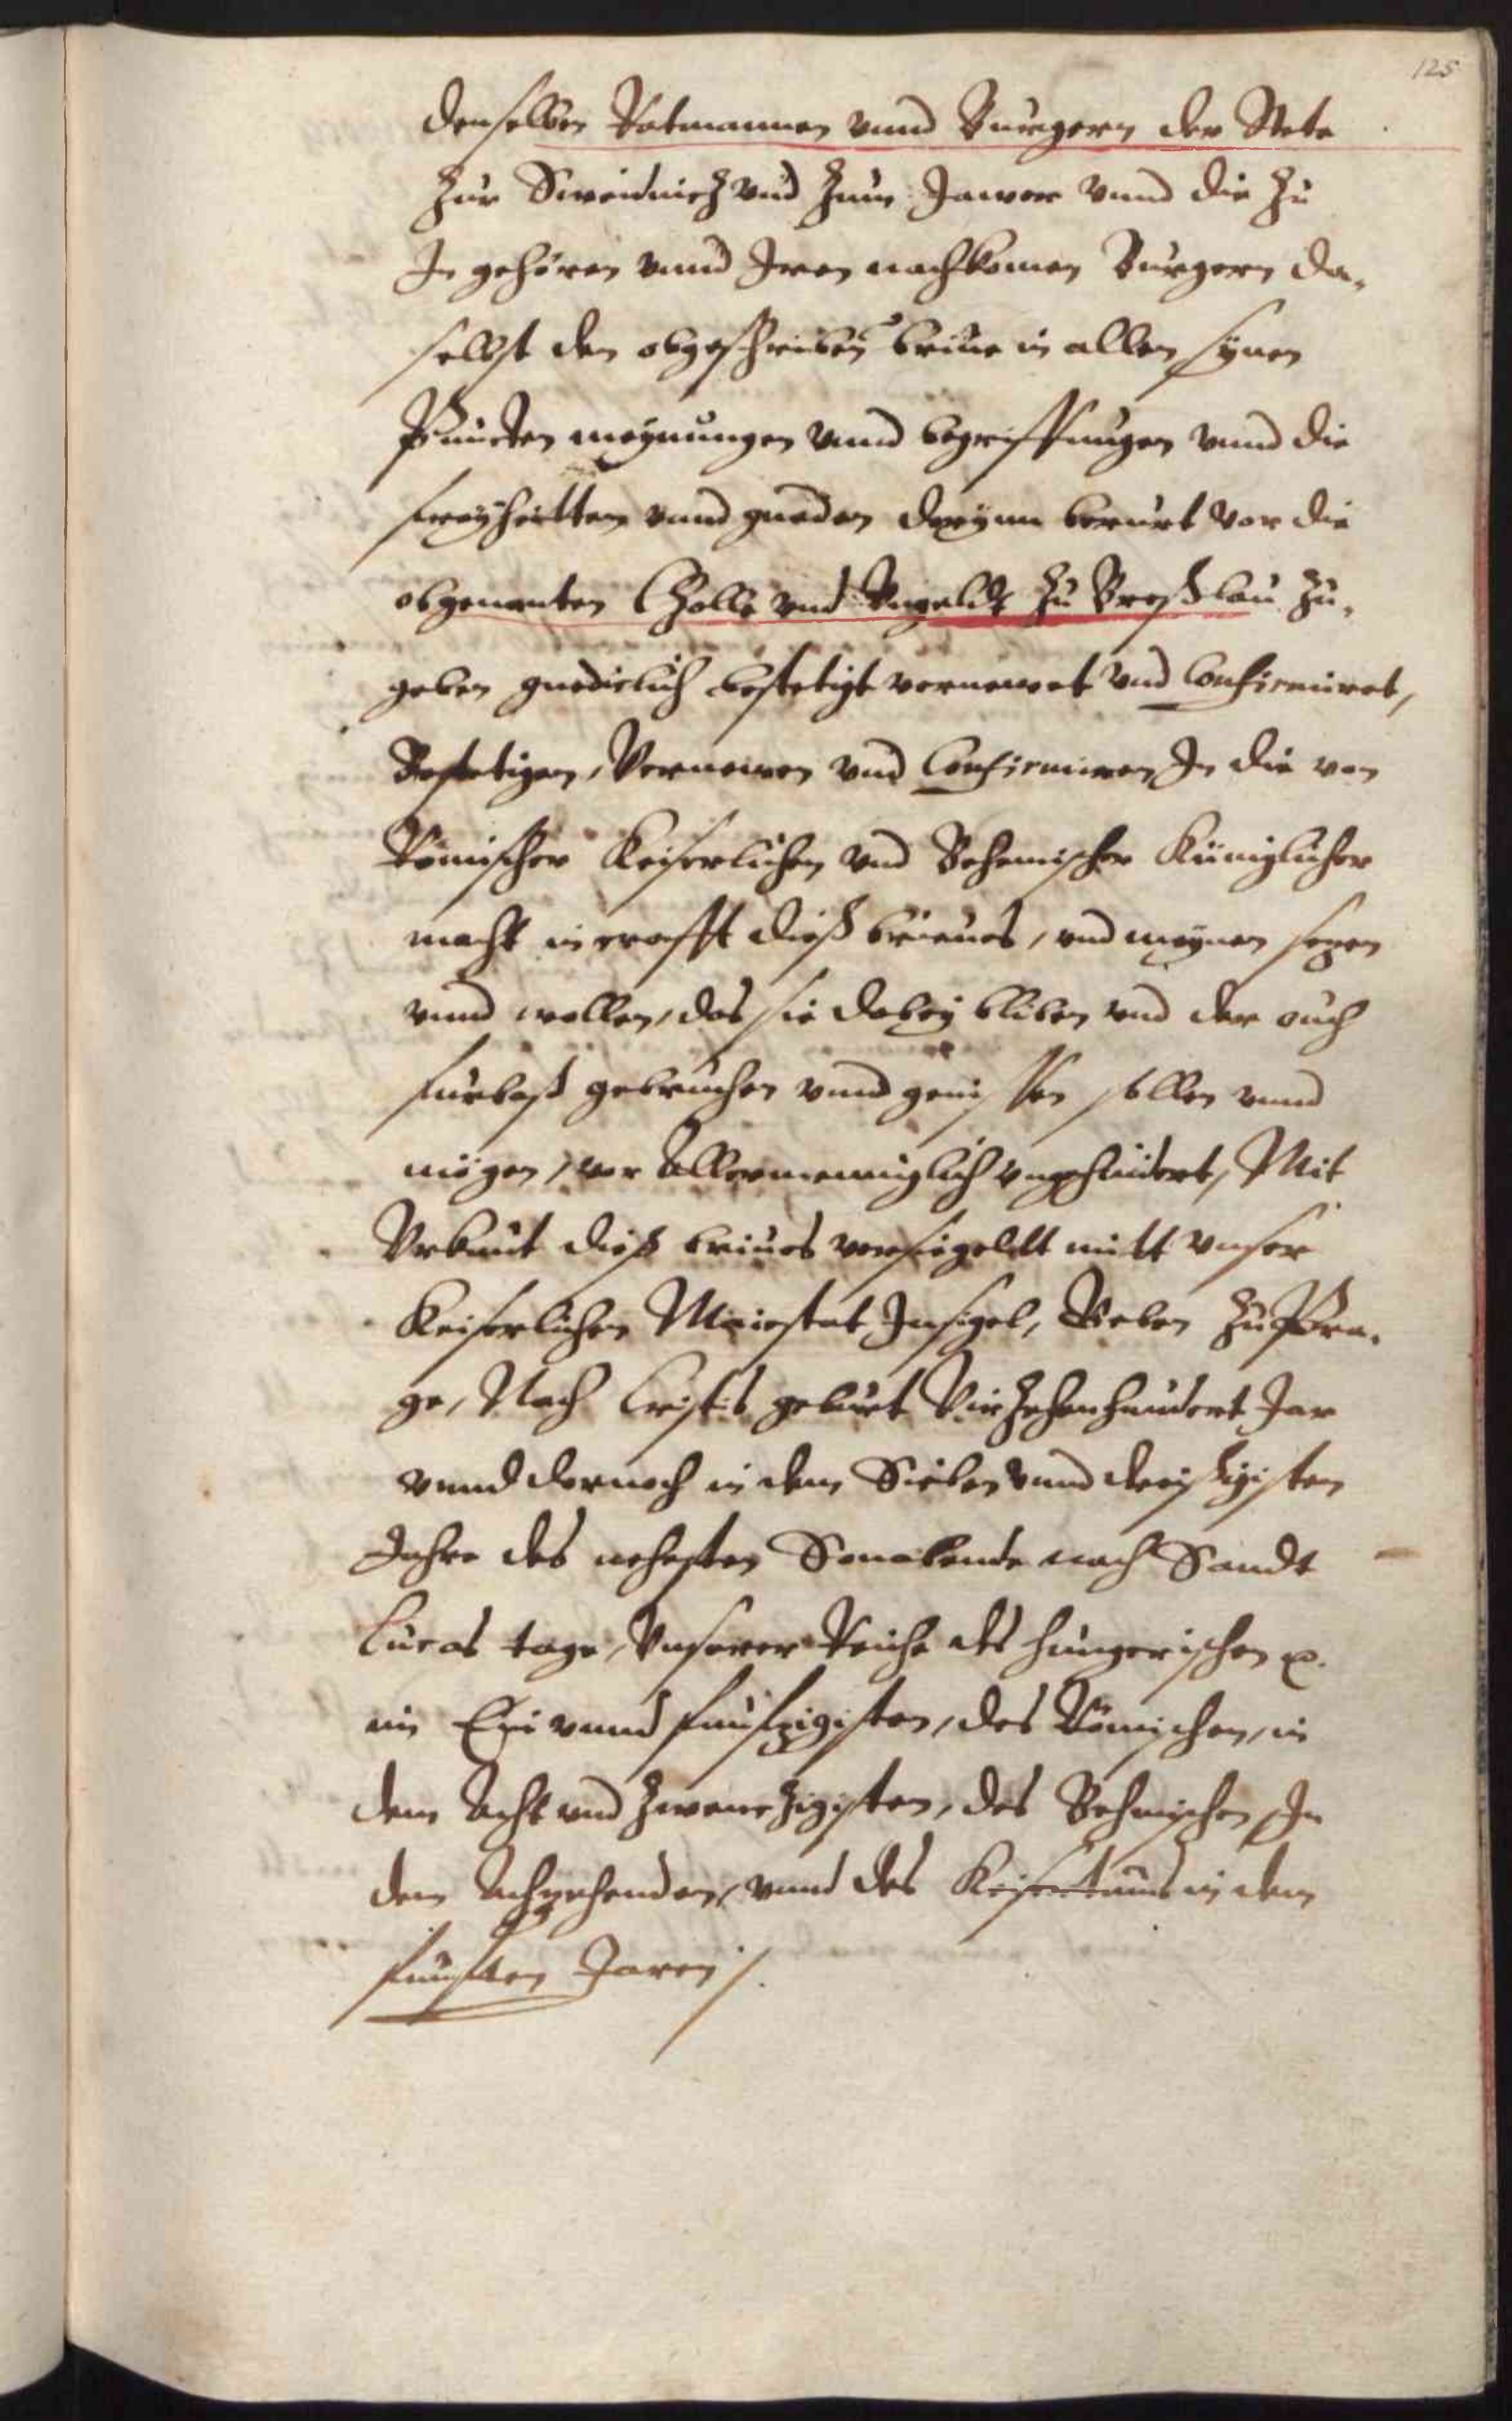 125
denselben Ratmannen vnnd Burgern der Stete
zur Sweidnicz vnd zum Jawor vnnd die zu
In gehören vnnd Iren nachkomen Burgern da,
selbst den obgeschriben briue in allen synen
Puncten meynungen vnnd begriffungen vnnd die
freyheitten vnnd gnaden dorynn berurt vor die
obgenanten Czolle vnd Vngeldt zu Breßlau zu,
geben gnediclich bestetigt vernewet vnd Confirmiret,
Bestetigen, Vernewen vnd Confirmiren In die von
Römischer Keiserlichen vnd Behemischer Küniglicher
macht in crafft diß brieues, vnd meynen sezen
vnnd wollen, das sie dabey bliben vnd der auch
furbaß gebruchen vnnd genissen sollen vnnd
mögen, vor Allermenniglich vngehindert, Mit
Vrkunt diß briues versiegeldt mitt vnser
Keiserlichen Maiestat Insigel, Geben zu Pra,
ge, Nach Cristis geburt Virzehenhundert Jar
vnnd dornach in dem Sieben vnnd dreissigisten
Jahre des nehesten Sonabende nach Sandt
Lucas tage, Vnserer Reiche des Hungerischen ꝛc.
im Ein vnnd funfzigisten, des Römischen, in
dem Acht vnd zwenczigisten, des Behmischen In
dem Achzehenden, vnnd des Keisertums in dem
funfften Jaren /.